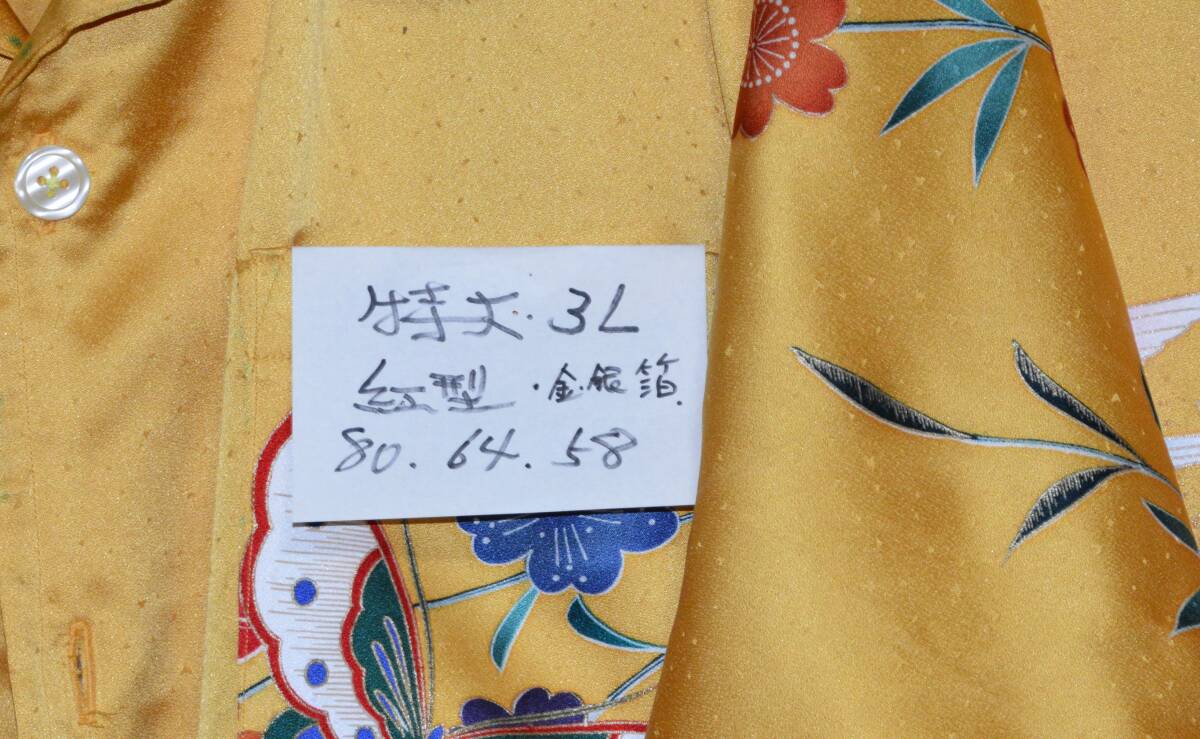 特大.3L
紅型.金.銀箔.
80.64.58